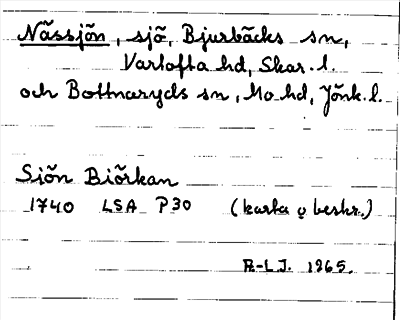 Nässjön, sjö, Bjurbäcks sn,
Vartofta hd, Skar. l.
och Bottnaryds sn, Mo hd, Jönk. l.
Sjön Biörkan
1740 LSA P30 (karta o beskr.)
R-LJ. 1965.